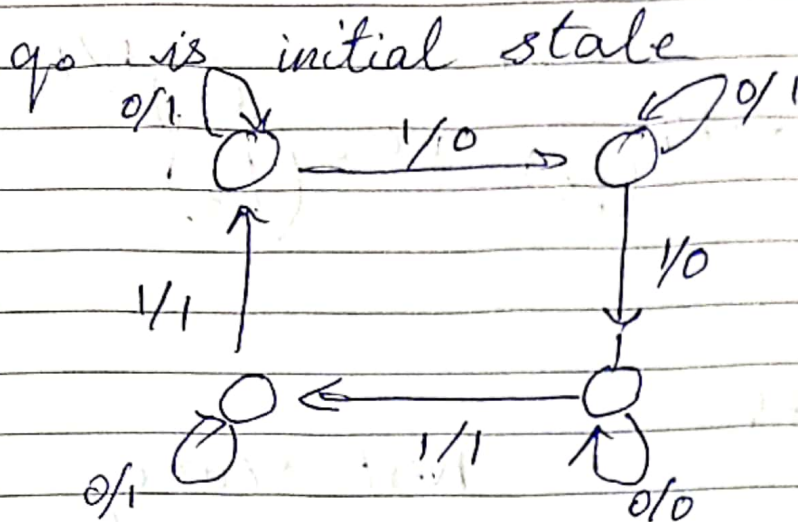 q0 is initial state
0/1 1/0 0/1
1/1 1/0
0/1 1/1 0/0